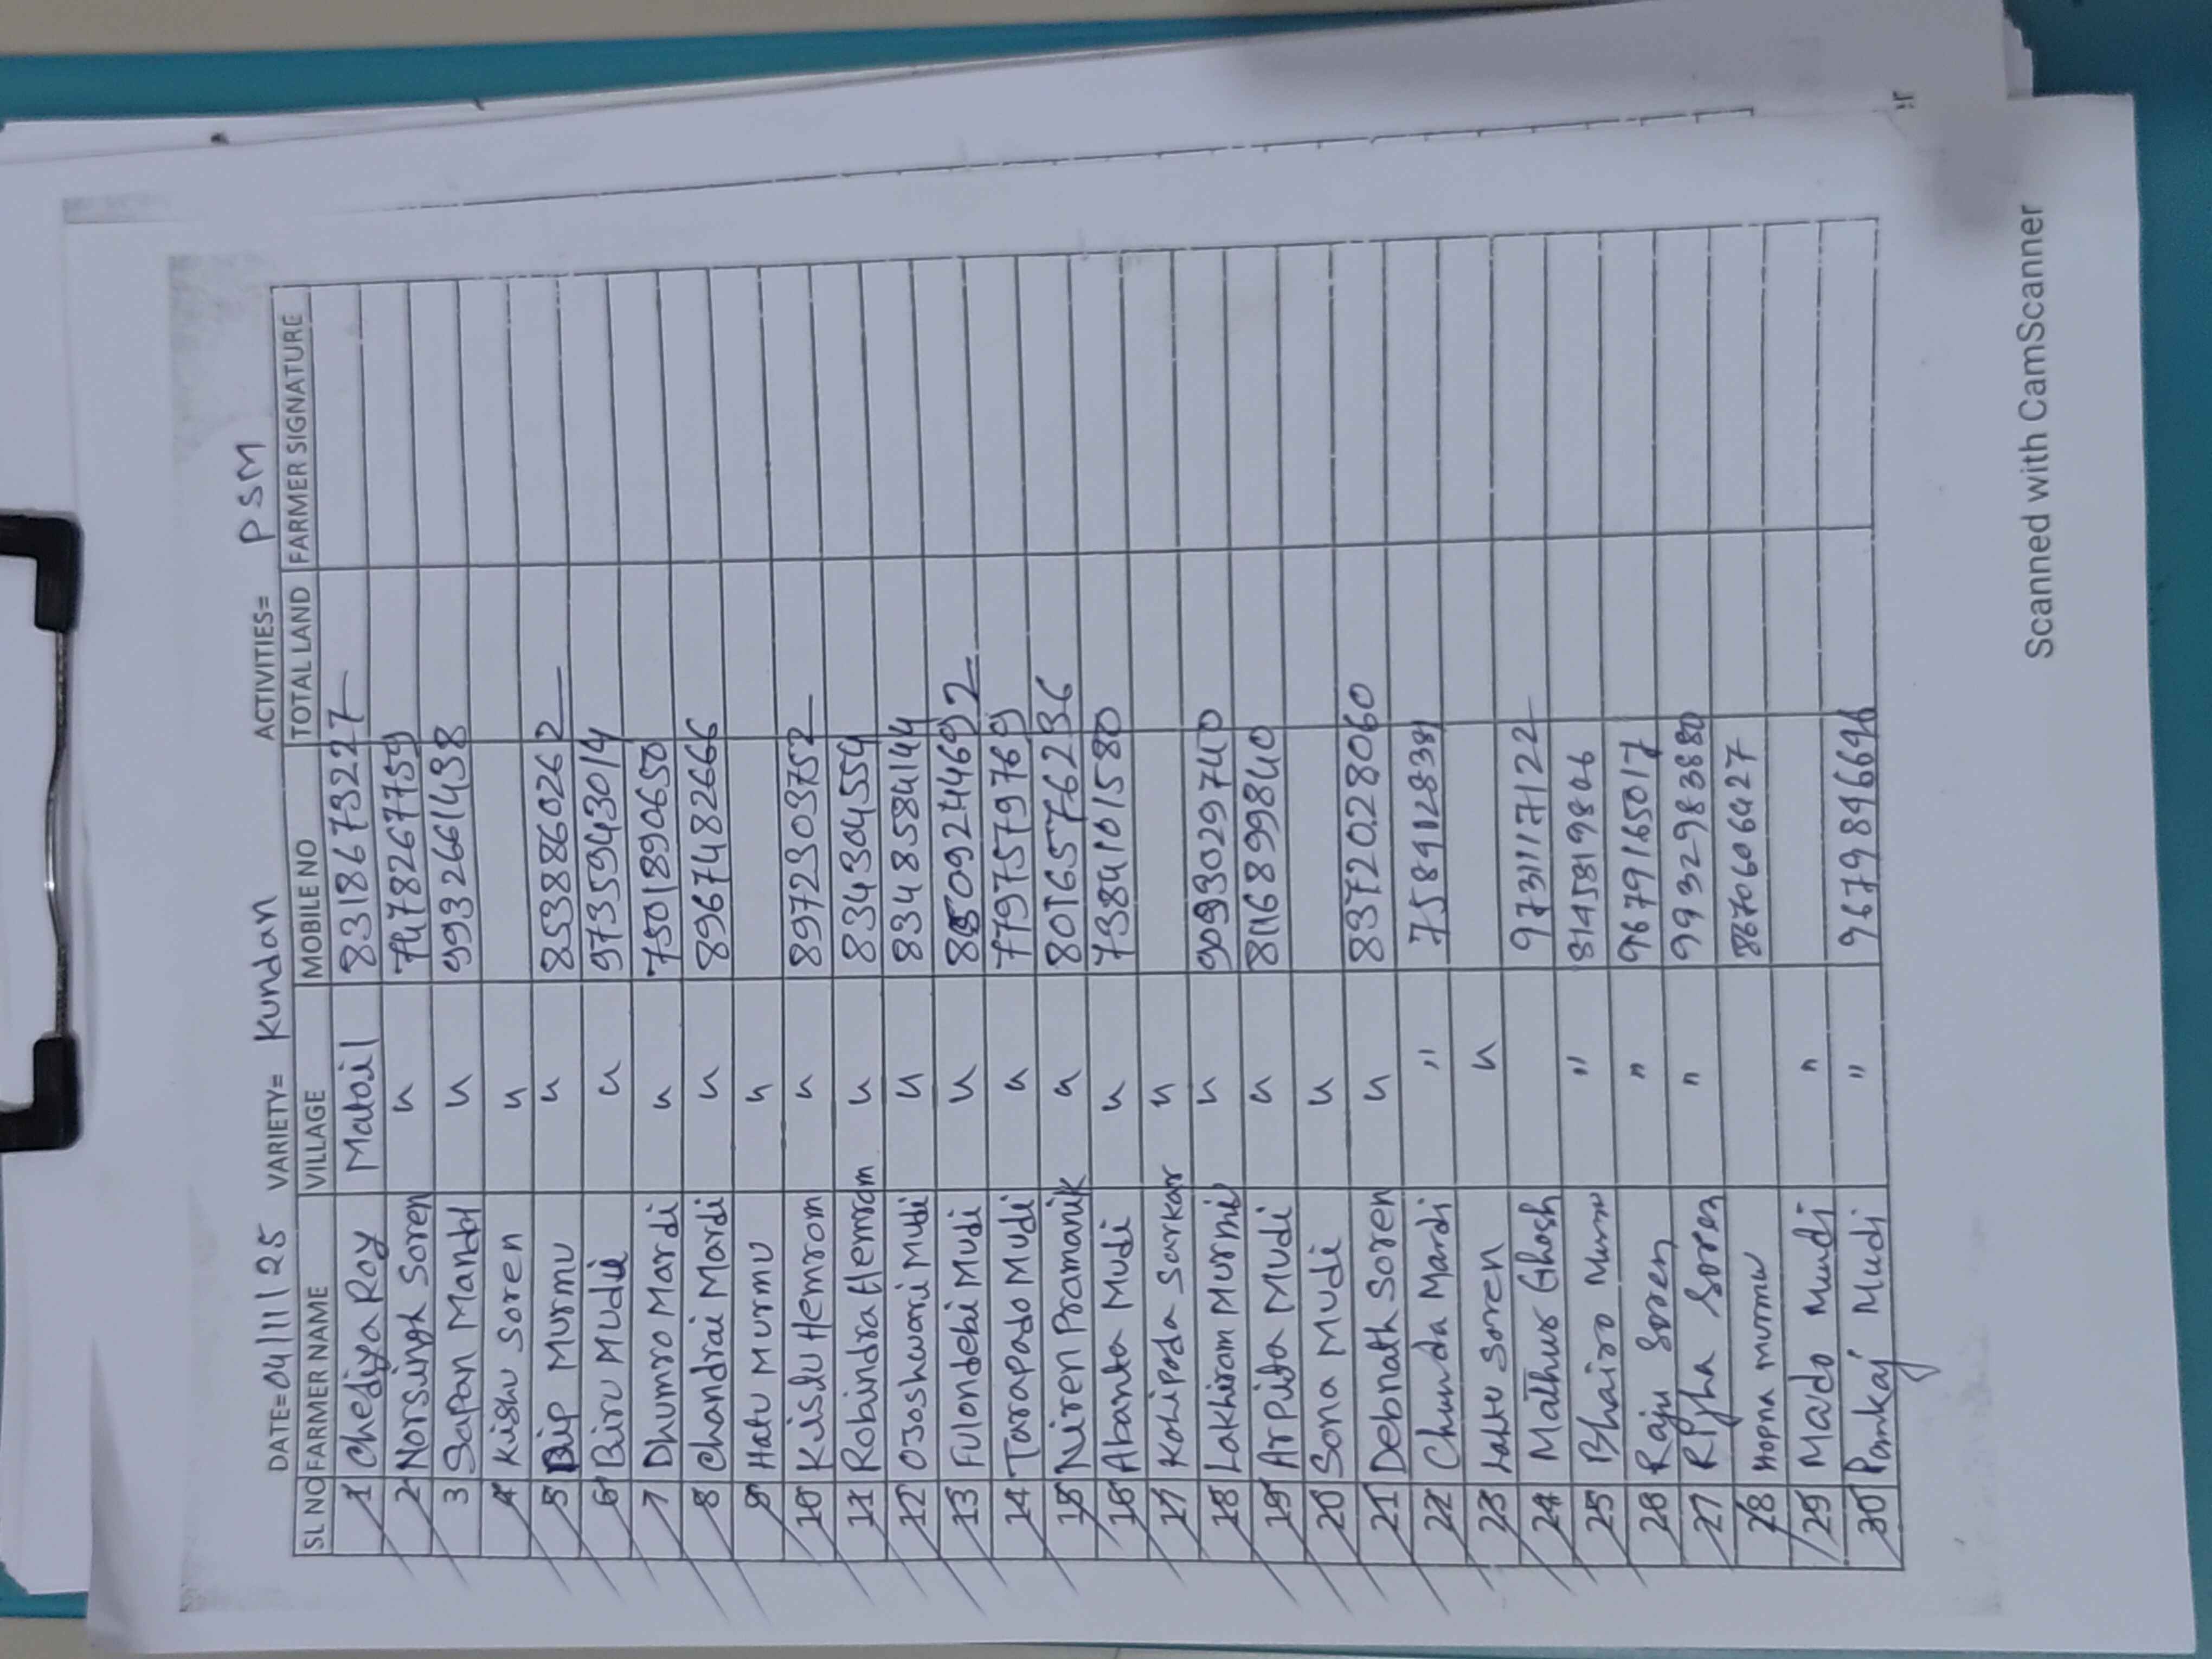 DATE=04/11/25 VARIETY= Kundan ACTIVITIES= PSM
SL NO FARMER NAME VILLAGE MOBILE NO TOTAL LAND FARMER SIGNATURE
1 Chediya Roy Matail 8318673227
2 Norsingh Soren " 7478267759
3 Sapan Mandal " 9932661438
4 Kishu Soren "
5 Bip Murmu " 8538860262
6 Biru Mudi " 9735943014
7 Dhumro Mardi " 7501890650
8 Chandrai Mardi " 8967482666
9 Hatu Murmu "
10 Kislu Hemrom " 8972303752
11 Robindra Hemrom " 8343045554
12 Ososhwari Mudi " 8348584144
13 Fulondebi Mudi "
14 Tarapado Mudi " 7797579769
15 Niren Pramanik " 8016576236
16 Abanta Mudi " 7384101580
17 Kohipoda Sarkar "
18 Lakhiram Murmu " 9093029740
19 Arpita Mudi " 8116899840
20 Sona Mudi "
21 Debnath Soren " 8372028060
22 Chunda Mardi "
23 Soren "
24 Mathur Ghosh 9731117122
25 Bhairo Murmu " 8145819806
26 Raju Soren " 9679165017
27 Righa Soren " 9932983880
28 Hopna murmu 8670606427
29 Maldo Mundi "
30 Pankaj Mudi "
Scanned with CamScanner